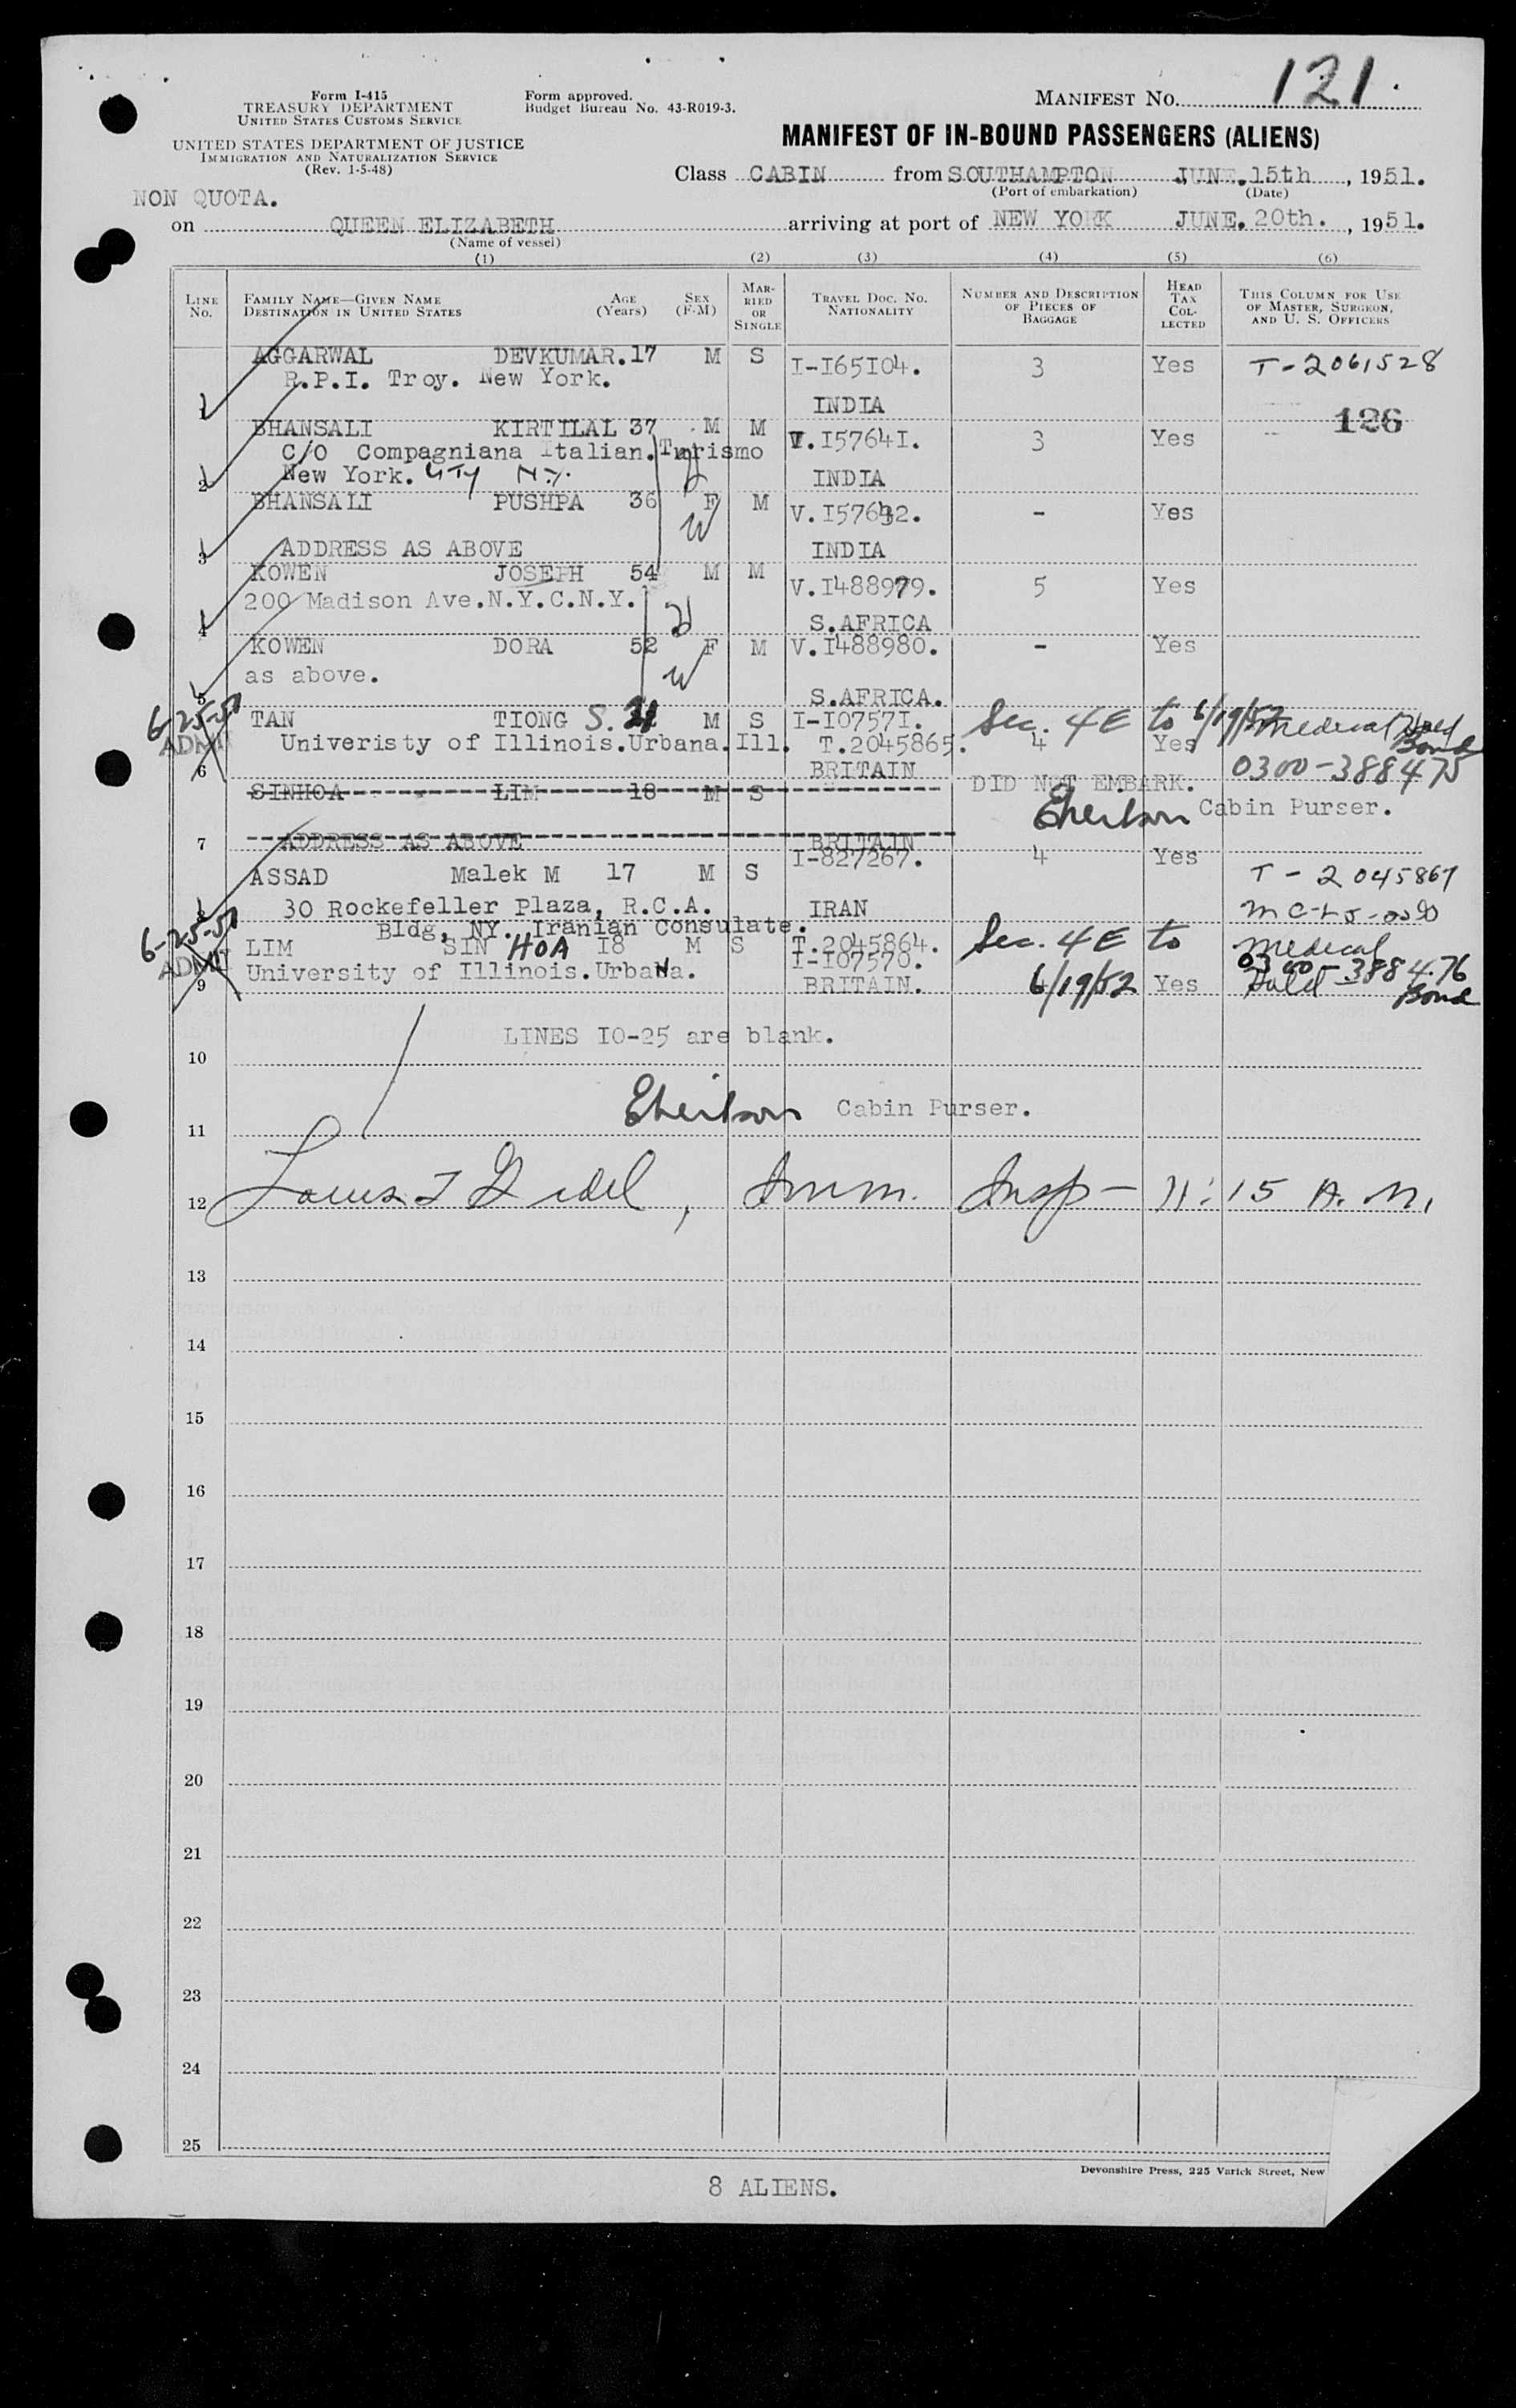 Form I-415
TREASURY DEPARTMENT
UNITED STATES CUSTOMS SERVICE
UNITED STATES DEPARTMENT OF JUSTICE
IMMIGRATION AND NATURALIZATION SERVICE
(Rev. 1-5-48)
Form approved.
Budget Bureau No. 43-R019-3.
MANIFEST NO. 121.
MANIFEST OF IN-BOUND PASSENGERS (ALIENS)
Class CABIN from SOUTHAMPTON JUNE. 15th, 1951.
(Port of embarkation) (Date)
NON QUOTA.
on QUEEN ELIZABETH arriving at port of NEW YORK JUNE. 20th., 1951.
(Name of vessel)
(1) (2) (3) (4) (5) (6)
LINE NO. FAMILY NAME—GIVEN NAME DESTINATION IN UNITED STATES AGE (Years) SEX (F-M) MARRIED OR SINGLE TRAVEL DOC. NO. NATIONALITY NUMBER AND DESCRIPTION OF PIECES OF BAGGAGE HEAD TAX COLLECTED THIS COLUMN FOR USE OF MASTER, SURGEON, AND U. S. OFFICERS
AGGARWAL DEVKUMAR. 17 M S I-I65I04. 3 Yes T-2061528
R.P.I. Troy. New York.
1 INDIA
126
BHANSALI KIRTILAL 37 M M V.I5764I. 3 Yes
C/O Compagniana Italian. Turismo
2 New York. CITY N.Y. INDIA
BHANSALI PUSHPA 36 F M V.I57642. - Yes
W
3 ADDRESS AS ABOVE INDIA
KOWEN JOSEPH 54 M M V.I488979. 5 Yes
200 Madison Ave.N.Y.C.N.Y.
4 S.AFRICA
KOWEN DORA 52 F M V.I488980. - Yes
as above. W
5 S.AFRICA.
6-25-51 TAN TIONG S. 21 M S I-I0757I. Sec. 4E to 6/19/52 Medical Hold
ADMI Univeristy of Illinois.Urbana.Ill. T.2045865. 4 Yes Bond
6 BRITAIN 0300-388475
SINHOA LIM 18 M S DID NOT EMBARK.
Cabin Purser.
7 ADDRESS AS ABOVE BRITAIN
ASSAD Malek M 17 M S I-827267. 4 Yes T-2045867
8 30 Rockefeller Plaza, R.C.A. IRAN
Bldg, NY. Iranian Consulate.
6-25-51 LIM SIN HOA I8 M S T.2045864. Sec. 4E to Medical
I-I07570. 0300-388476
ADMI University of Illinois.UrbaNa. Hold
9 BRITAIN. 6/19/52 Yes Bond
LINES IO-25 are blank.
10
Cabin Purser.
11
12 Imm. Insp - 11:15 A.M.
13
14
15
16
17
18
19
20
21
22
23
24
25
Devonshire Press, 225 Varick Street, New
8 ALIENS.